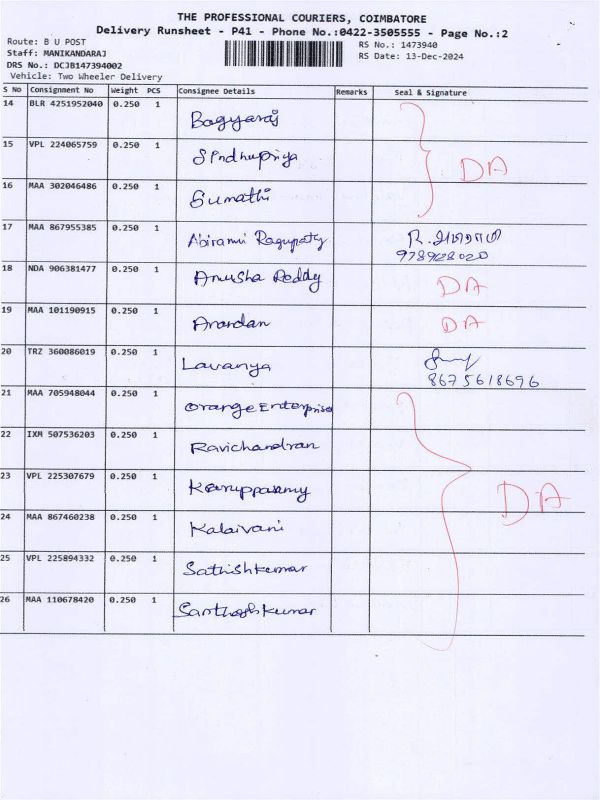 THE PROFESSIONAL COURIERS, COIMBATORE
Delivery Runsheet - P41 - Phone No.:0422-3505555 - Page No.:2
Route: B U POST
Staff: MANIKANDARAJ
DRS No.: DCJB147394002
Vehicle: Two Wheeler Delivery
RS No.: 1473940
RS Date: 13-Dec-2024
S No Consignment No Weight PCS Consignee Details Remarks Seal & Signature
14 BLR 4251952040 0.250 1 Bagyaraj
15 VPL 224065759 0.250 1 Sindhupriya DA
16 MAA 302046486 0.250 1 Sumathi
17 MAA 867955385 0.250 1 Abirami Ragupaty
18 NDA 906381477 0.250 1 Anusha Reddy DA
19 MAA 101190915 0.250 1 Anandan DA
20 TRZ 360086019 0.250 1 Lavanya
8675618696
21 MAA 705948044 0.250 1 Orange Enterprise
22 IXM 507536203 0.250 1 Ravichandran
23 VPL 225307679 0.250 1 Karuppasamy DA
24 MAA 867460238 0.250 1 Kalaivani
25 VPL 225894332 0.250 1 Sathishkumar
26 MAA 110678420 0.250 1 Santhoshkumar